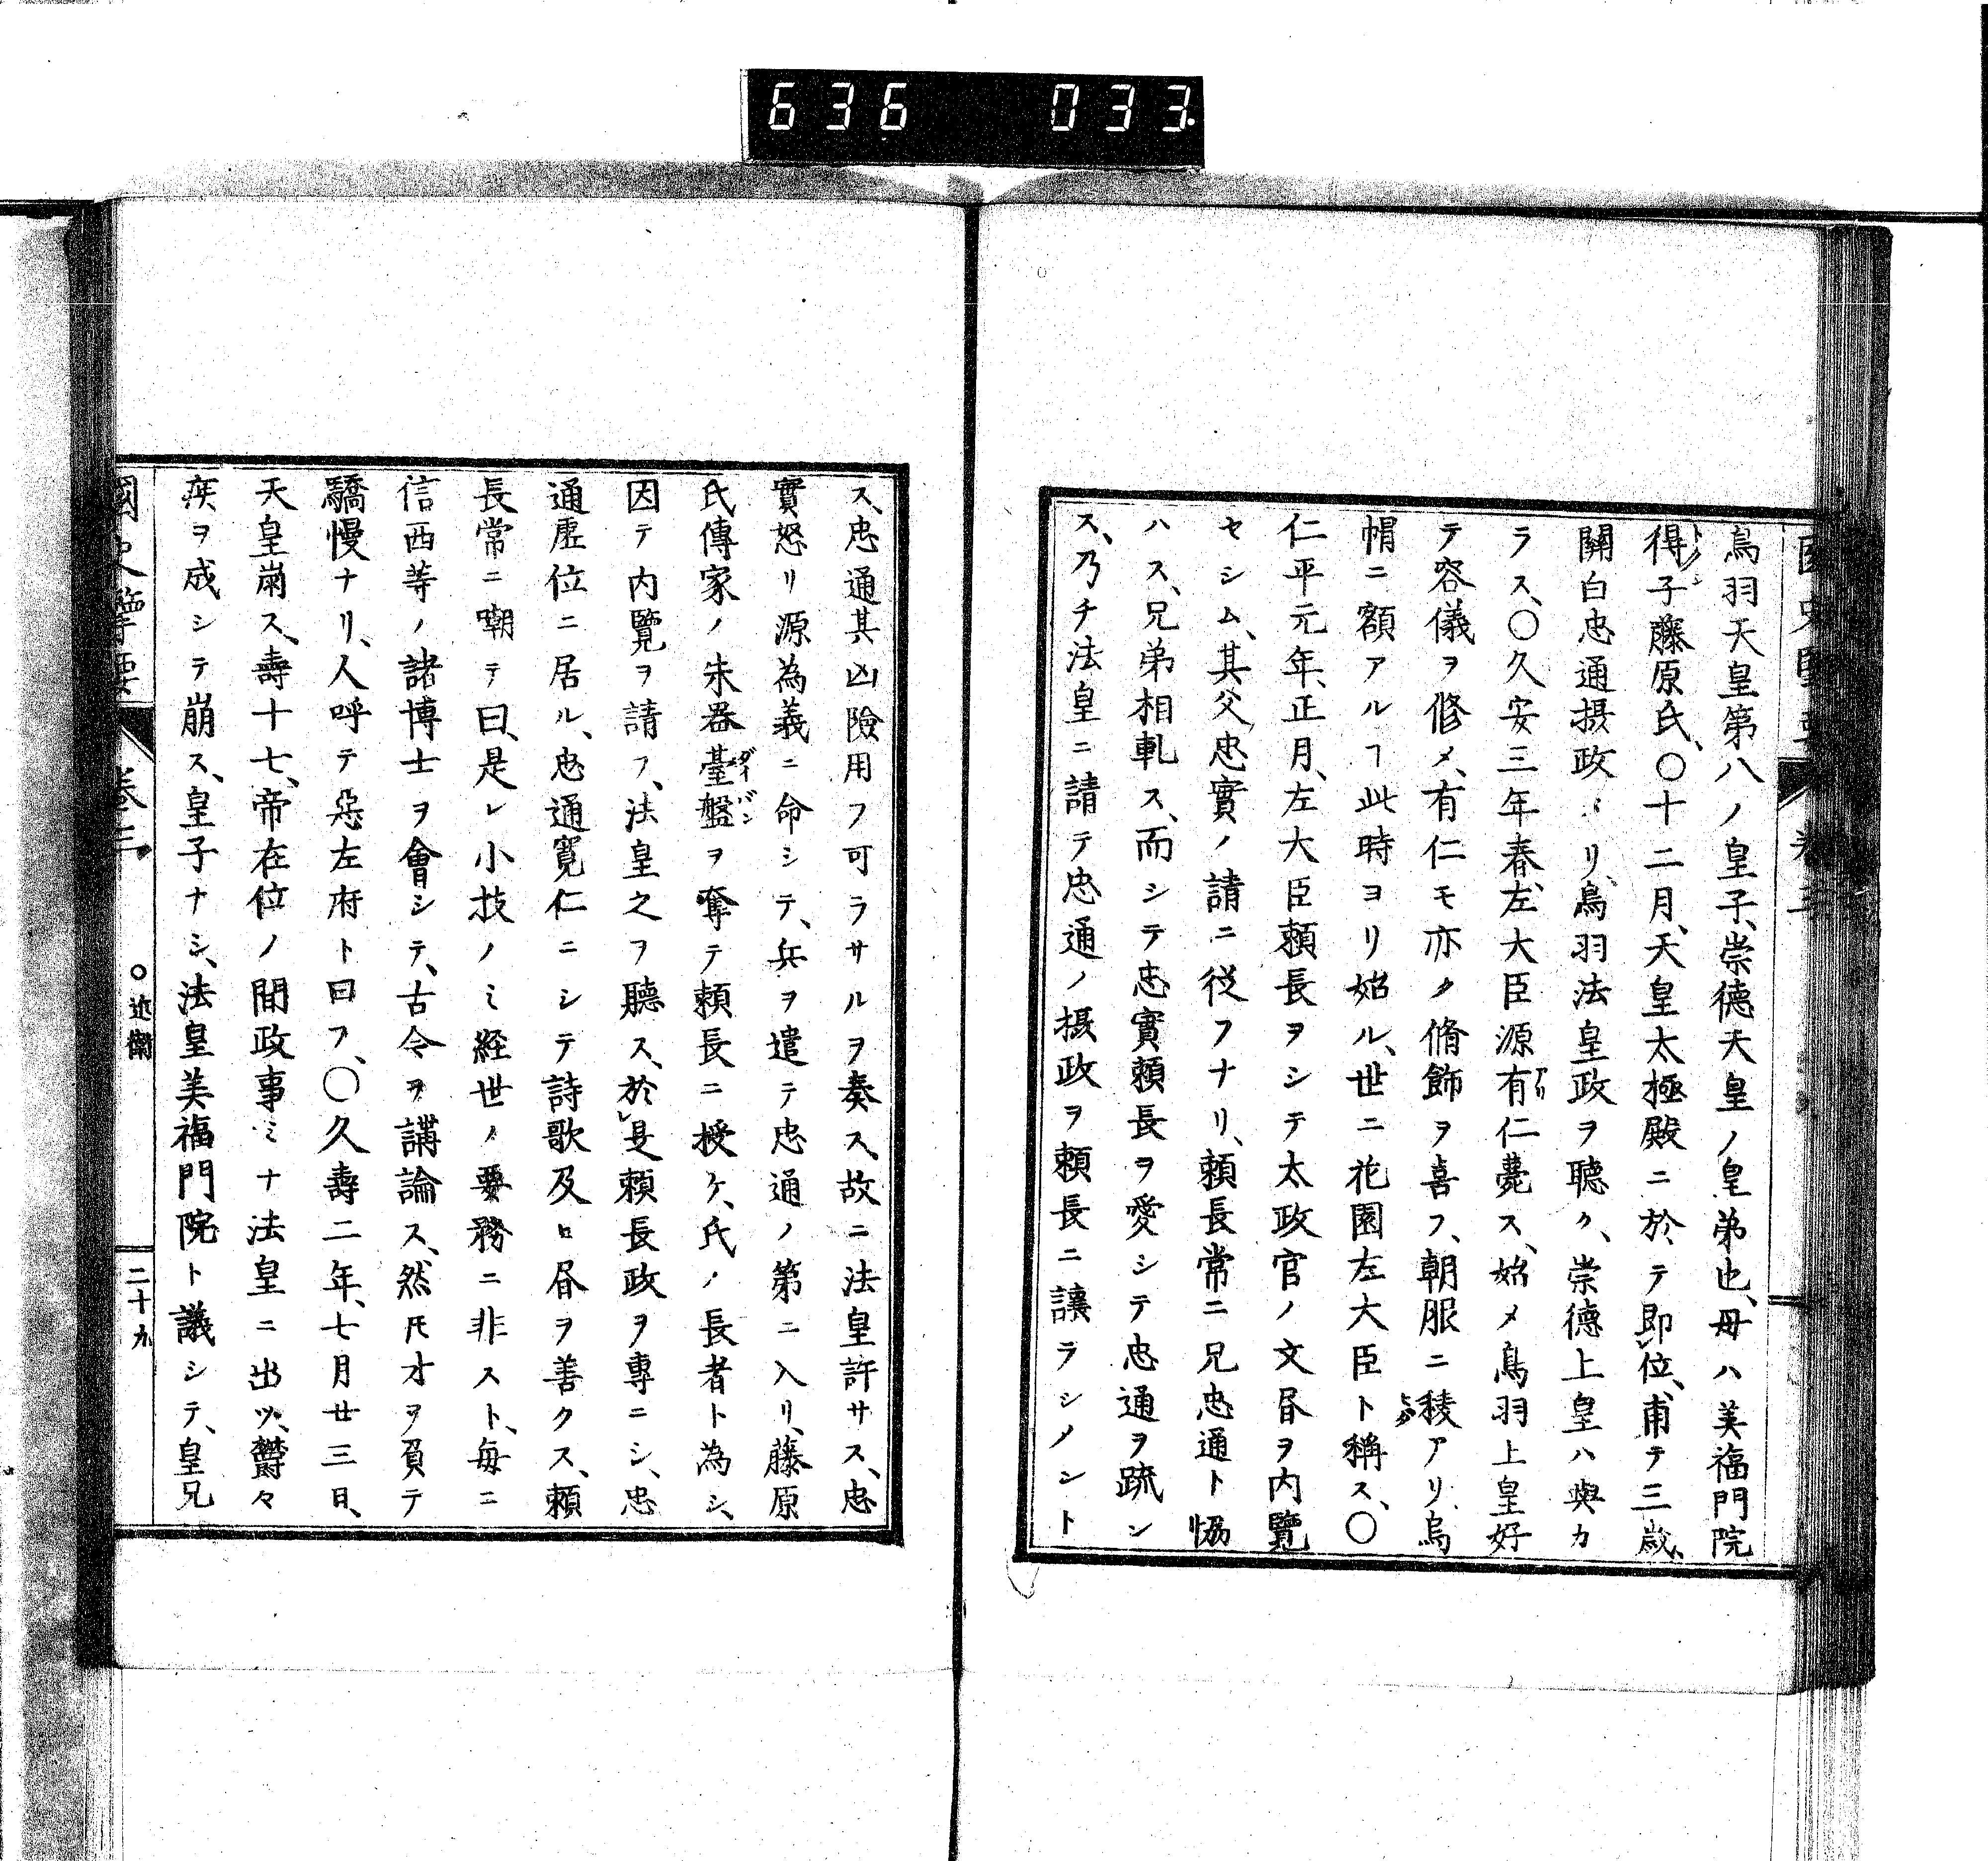 636 033.
鳥羽天皇第八ノ皇子、崇德天皇ノ皇弟也、母ハ美福門院
得子藤原氏、〇十二月、天皇太極殿ニ於テ即位、甫テ三歳、
關白忠通摂政タリ、鳥羽法皇政ヲ聽ク、崇德上皇ハ與カ
ラス、〇久安三年春、左大臣源有仁薨ス、始メ鳥羽上皇好
テ容儀ヲ修メ、有仁モ亦タ脩飾ヲ喜フ、朝服ニ稜アリ烏
帽ニ額アルヿ此時ヨリ始ル、世ニ花園左大臣ト稱ス、〇
仁平元年、正月、左大臣頼長ヲシテ太政官ノ文昏ヲ内覽
セシム、其父忠實ノ請ニ従フナリ、頼長常ニ兄忠通ト恊
ハス、兄弟相軋ス、而シテ忠實頼長ヲ愛シテ忠通ヲ疏ン
ス、乃チ法皇ニ請テ忠通ノ摂政ヲ頼長ニ讓ラシメント
ス、忠通其凶險用フ可ラサルヲ奏ス、故ニ法皇許サス、忠
實怒リ源為義ニ命シテ、兵ヲ遣テ忠通ノ第ニ入リ、藤原
氏傳家ノ朱器臺盤ヲ奪テ頼長ニ授ケ、氏ノ長者ト為シ、
因テ内覽ヲ請フ、法皇之ヲ聽ス、於是頼長政ヲ專ニシ、忠
通虚位ニ居ル、忠通寛仁ニシテ詩歌及ヒ昏ヲ善クス、頼
長常ニ嘲テ曰、是レ小技ノミ経世ノ要務ニ非スト、毎ニ
信西等ノ諸博士ヲ會シテ、古今ヲ講論ス、然𪜈才ヲ負テ
驕慢ナリ、人呼テ惡左府ト曰フ、〇久壽二年、七月廿三日、
天皇崩ス、壽十七、帝在位ノ間政事ミナ法皇ニ出ツ、欝々
疾ヲ成シテ崩ス、皇子ナシ、法皇美福門院ト議シテ、皇兄
國史擥要 卷三 〇近衛 二十九